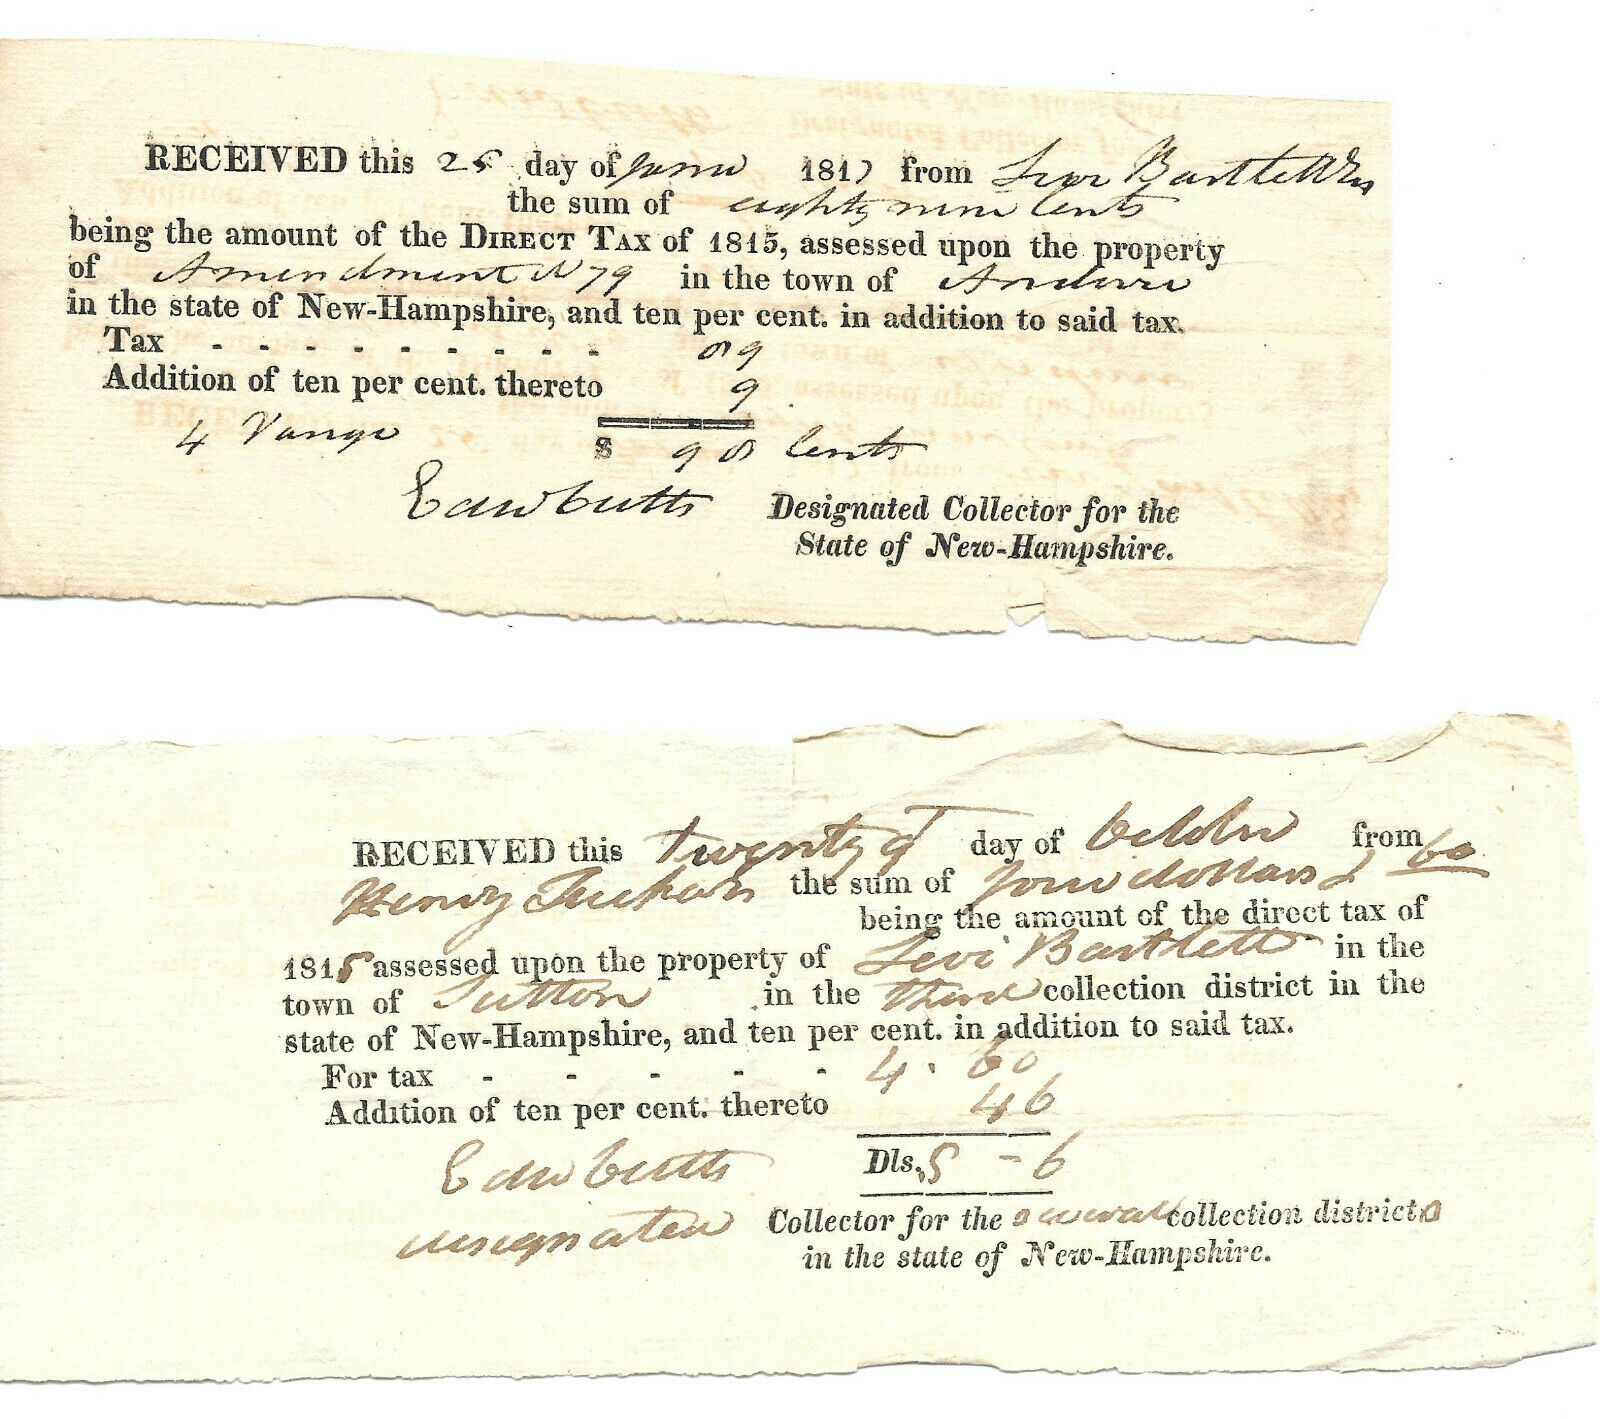 RECEIVED this 25 day of June 1817 from Levi Bartlett Esq
the sum of eighty nine Cents
being the amount of the DIRECT TAX of 1815, assessed upon the property
of Amendment N 79 in the town of Andover
in the state of New-Hampshire, and ten per cent. in addition to said tax.
Tax - - - - - - - - - 89
Addition of ten per cent. thereto 9
4 Range $ 98 Cents
Edw Cutts Designated Collector for the
State of New-Hampshire.
RECEIVED this twenty day of October from
Henry the sum of four dollars & 60
being the amount of the direct tax of
1815 assessed upon the property of Levi Bartlett in the
town of Sutton in the third collection district in the
state of New-Hampshire, and ten per cent. in addition to said tax.
For tax - - - - - 4. 60
Addition of ten per cent. thereto 46
Edw Cutts Dls. 5 - 6
designated Collector for the several collection districts
in the state of New-Hampshire.